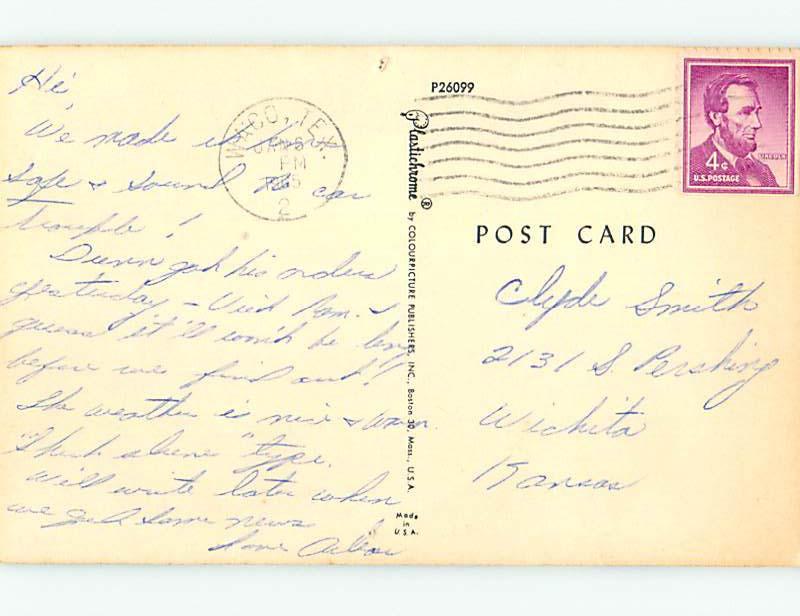 Hi,
We made it here
safe & sound No car
trouble!
Dunn got his orders
yesterday - Viet Nam. I
guess it'll won't be long
before we find out!
The weather is nice & warm.
"Short sleeve" type.
Will write later when
we get some news
Love
WACO, TEX.
JAN 6
PM
2
P26099
Plastichrome ®
by COLOURPICTURE PUBLISHERS, INC., Boston 30, Mass., U.S.A.
Made
in
U.S.A.
LINCOLN
4¢
U.S. POSTAGE
POST CARD
Clyde Smith
2131 S. Pershing
Wichita
Kansas